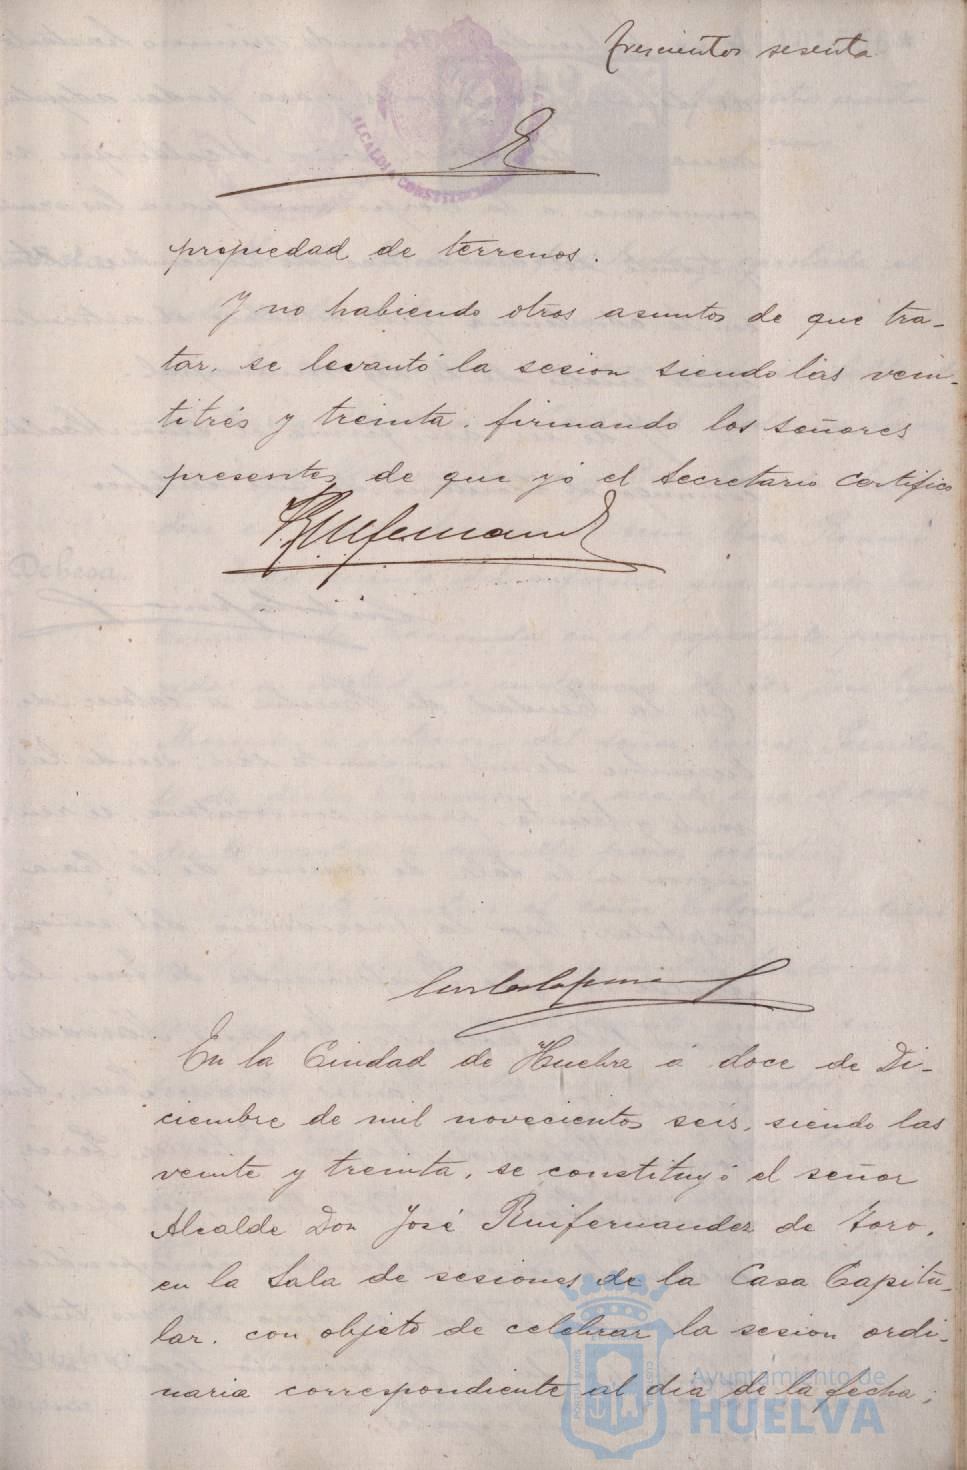 trescientos sesenta
ALCALDIA CONSTITUCIONAL
propiedad de terrenos.
Y no habiendo otros asuntos de que tra-
tar, se levantó la sesion siendo las vein-
titrés y treinta, firmando los señores
presentes de que yó el Secretario certifico
En la Ciudad de Huelva á doce de Di-
ciembre de mil novecientos seis, siendo las
veinte y treinta, se constituyó el señor
Alcalde Don José Ruifernandez de Toro,
en la Sala de sesiones de la Casa Capitu-
lar, con objeto de celebrar la sesion ordi-
naria correspondiente al dia de la fecha;
Ayuntamiento de
HUELVA